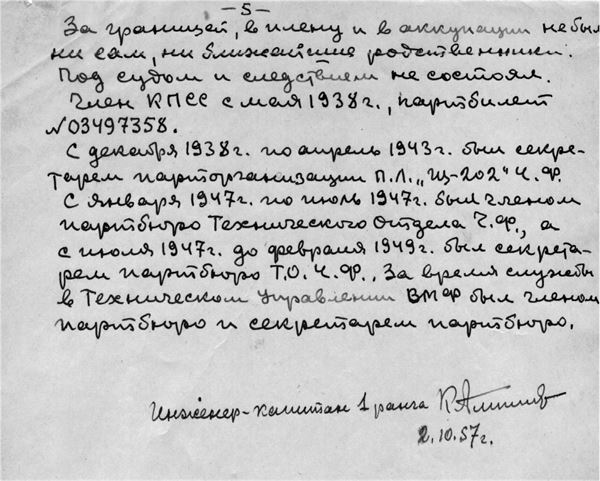 – 5 –
За границей, в плену и в аккупации не был
ни сам, ни ближайшие родственники.
Под судом и следствием не состоял.
Член КПСС с мая 1938г., партбилет
№03497358.
С декабря 1938г. по апрель 1943г. был секре-
тарем парторганизации п.л. „Щ-202" Ч.Ф.
С января 1947г. по июль 1947г. был членом
партбюро Технического Отдела Ч.Ф., а
с июля 1947г. до февраля 1949г. был секрета-
рем партбюро Т.О. Ч.Ф.. За время службы
в Техническом Управлении ВМФ был членом
партбюро и секретарем партбюро.
Инженер-капитан 1 ранга
2.10.57г.